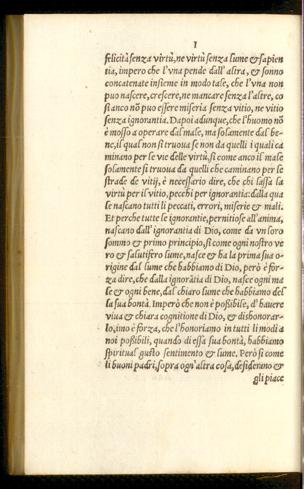 I
felicità senza virtù, ne virtù senza lume & sapien
tia, impero che l'vna pende dall'altra, & sonno
concatenate insieme in modo tale, che l'vna non
puo nascere, crescere, ne mancare senza l'altre, co
sì anco nõ puo essere miseria senza vitio, ne vitio
senza ignorantia. Dapoi adunque, che l'huomo nõ
è mosso a operare dal male, ma solamente dal be-
ne, il qual non si truoua se non da quelli i quali ca
minano per le vie delle virtù, sì come anco il male
solamente si truoua da quelli che caminano per le
strade de vitij, è necessario dire, che chi lassa la
virtù per il vitio, pecchi per ignorantia: dalla qua
le nascano tutti li peccati, errori, miserie & mali.
Et perche tutte le ignorantie, pernitiose all'anima,
nascano dall'ignorantia di Dio, come da vn loro
sommo & primo principio, sì come ogni nostro ve
ro & salutifero lume, nasce & ha la prima sua o-
rigine dal lume che habbiamo di Dio, però è for-
za dire, che dalla ignorãtia di Dio, nasce ogni ma
le & ogni bene, dal chiaro lume che habbiamo del
la sua bontà. Imperò che non è possibile, d'hauere
viua & chiara cognitione di Dio, & dishonorar-
lo, imo è forza, che l'honoriamo in tutti li modi a
noi possibili, quando di essa sua bontà, habbiamo
spiritual gusto sentimento & lume. Però sì come
li buoni padri, sopra ogn'altra cosa, desiderano &
gli piace